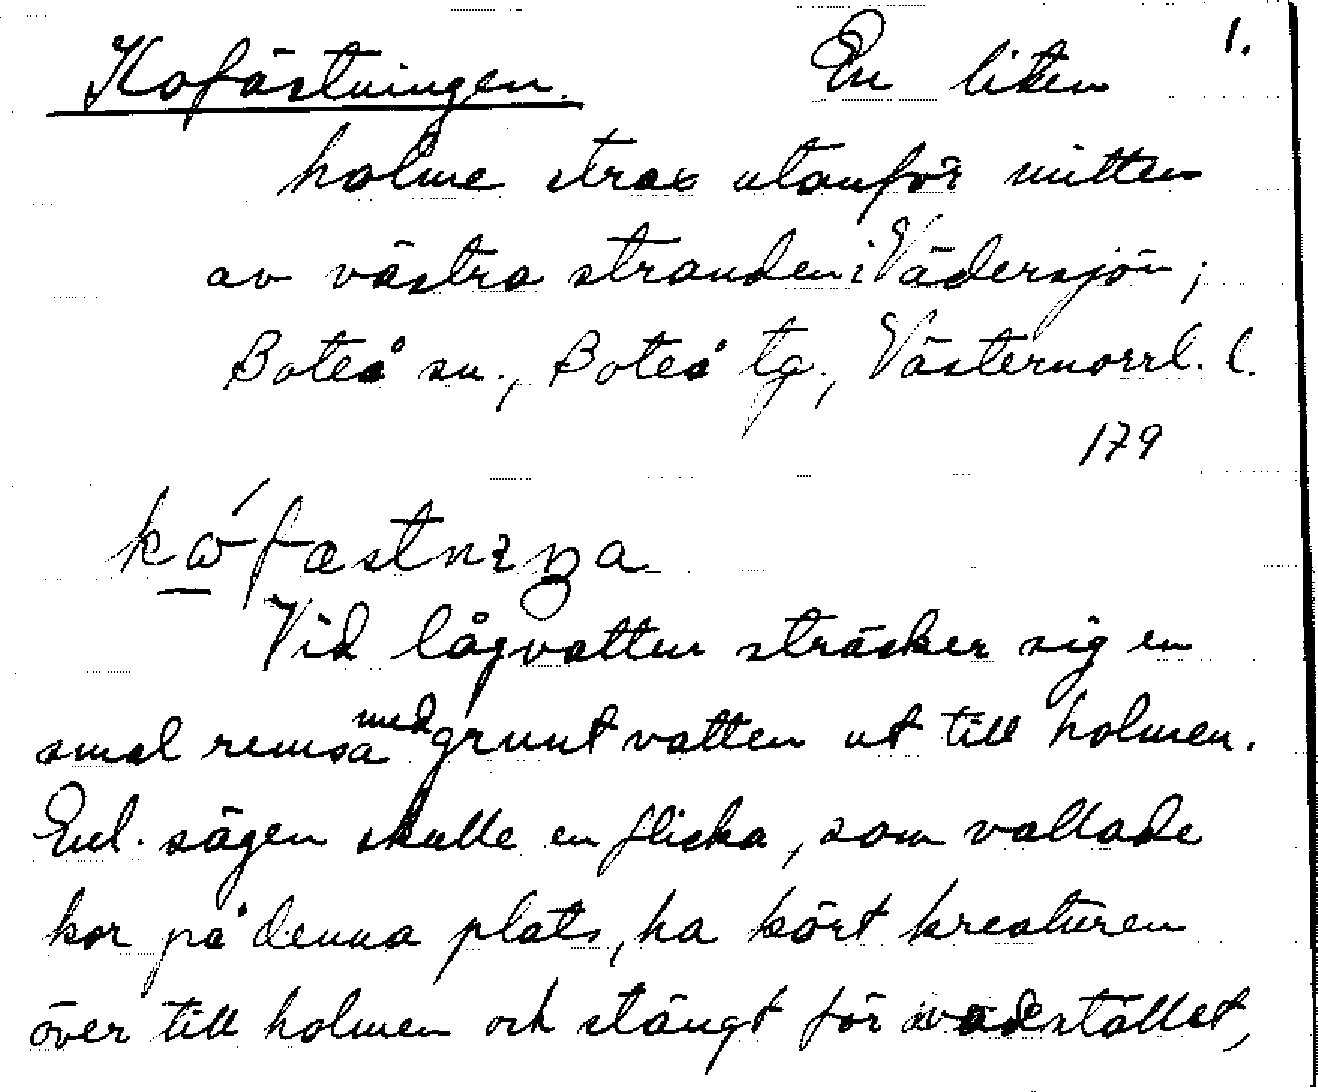 1.
Kofästningen. En liten
holme strax utanför mitten
av västra stranden i Vädersjön;
Boteå sn., Boteå tg., Västernorrl. l.
179
kɷ́fæstnıŋa
Vid lågvatten sträcker sig en
smal remsa med grunt vatten ut till holmen.
Enl. sägen skulle en flicka, som vallade
kor på denna plats, ha kört kreaturen
över till holmen och stängt för vadstället,